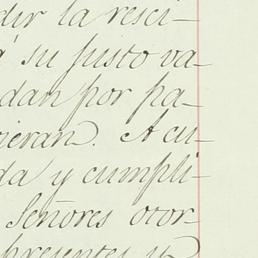 dir la resci-
á su justo va-
dan por pa-
ieran. Acu-
da y cumpli-
Señores otor-
presentes y